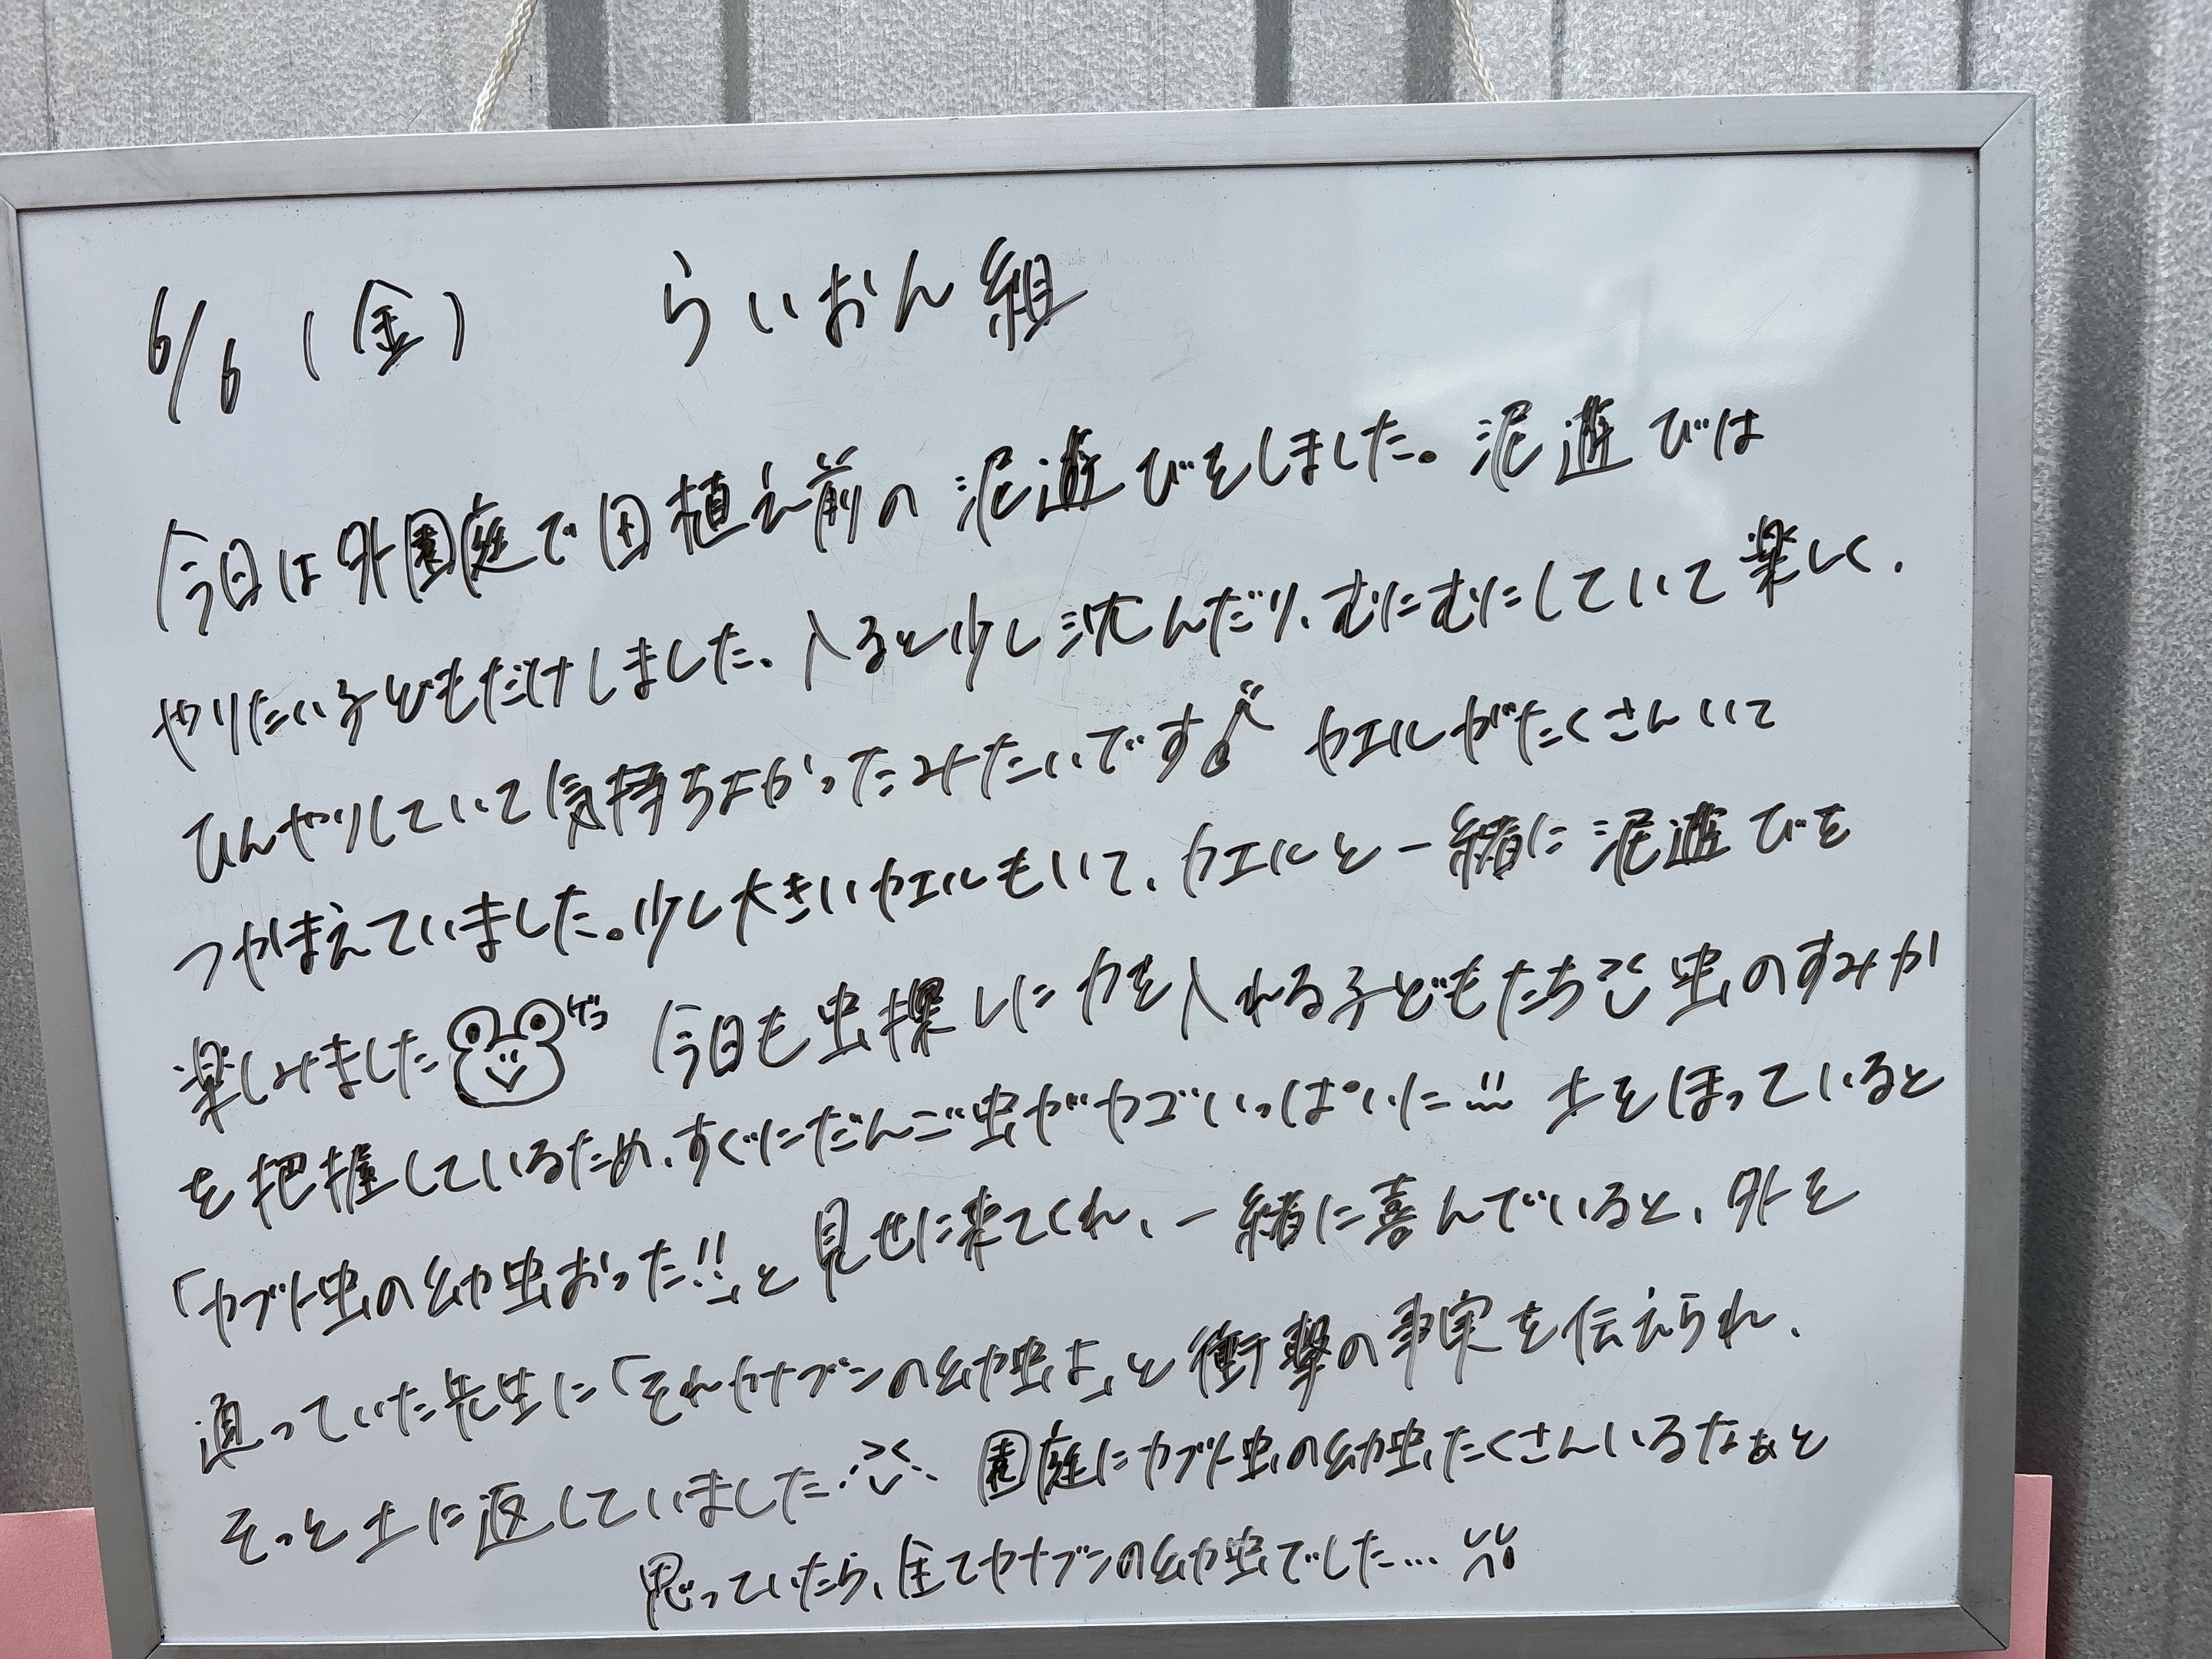 6/6 (金) らいおん組
今日は外園庭で田植え前の泥遊びをしました。泥遊びは
やりたい子どもだけしました。入ると少し沈んだり、むにむにしていて楽しく、
ひんやりしていて気持ちよかったみたいです♪ カエルがたくさんいて
つかまえていました。少し大きいカエルもいて、カエルと一緒に泥遊びを
楽しみました ゲコ 今日も虫探しに力を入れる子どもたち 虫のすみか
を把握しているため、すぐにだんご虫がカゴいっぱいに!! 土をほっていると
「カブト虫の幼虫おった!!」と見せに来てくれ、一緒に喜んでいると、外を
通っていた先生に「それカナブンの幼虫よ」と衝撃の事実を伝えられ、
そっと土に返していました 園庭にカブト虫の幼虫たくさんいるなぁと
思っていたら、全てカナブンの幼虫でした…